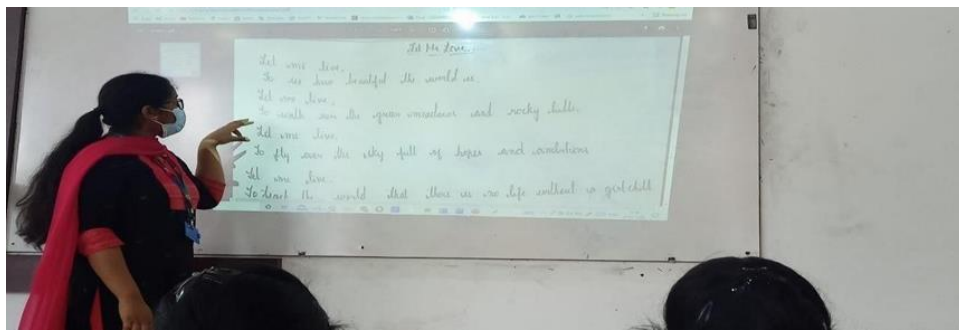 Let Me Live...
Let me live,
To see how beautiful the world is.
Let me live,
To walk over the green meadows and rocky hills.
Let me live,
To fly over the sky full of hopes and ambitions
Let me live..
To teach the world that there is no life without a girl child